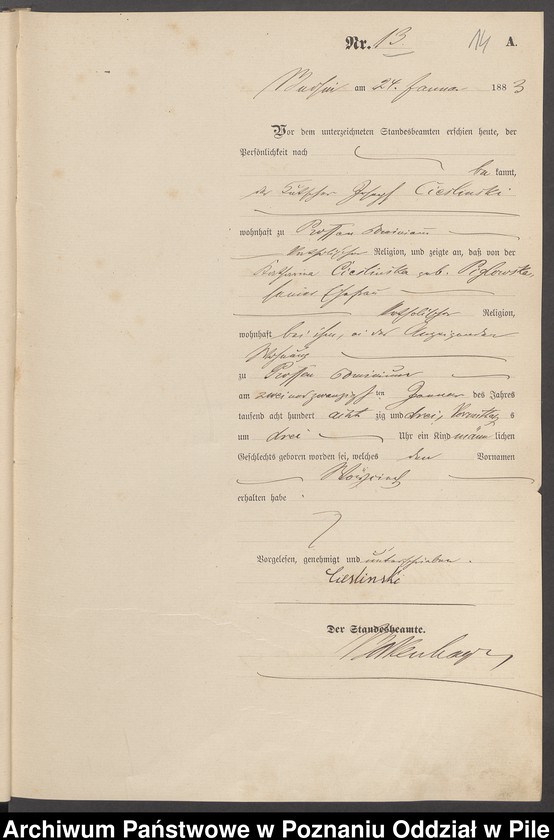 Nr. 13 14 A.
am 24. Januar 1883
Vor dem unterzeichneten Standesbeamten erschien heute, der
Persönlichkeit nach
be kannt,
der Kutscher Joseph Cieslinski
wohnhaft zu Dominium
katholischer Religion, und zeigte an, daß von der
Katharina Cieslinska geb.
seiner Ehefrau
katholischer Religion,
wohnhaft bei ihm, in der
Wohnung
zu Dominium
am zweiundzwanzigsten Januar des Jahres
tausend acht hundert acht zig und drei, Vormittags
um drei Uhr ein Kind männlichen
Geschlechts geboren worden sei, welches den Vornamen
erhalten habe
Vorgelesen, genehmigt und unterschrieben.
Cieslinski
Der Standesbeamte.
Archiwum Państwowe w Poznaniu Oddział w Pile